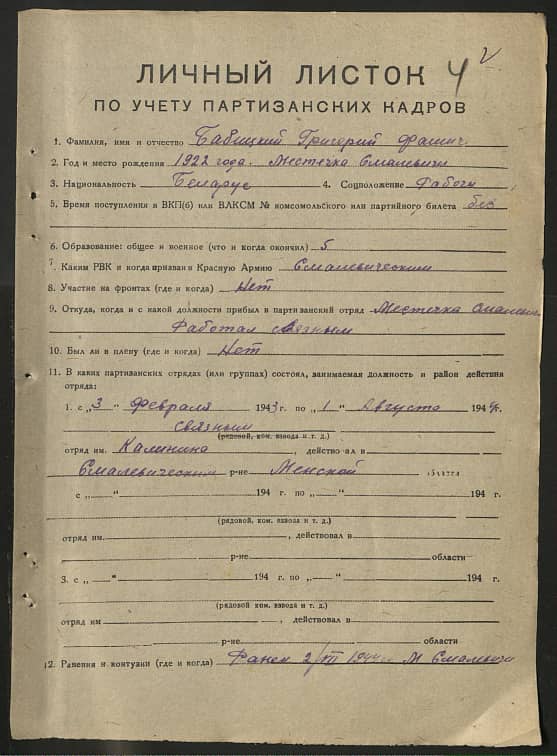 4 v
ЛИЧНЫЙ ЛИСТОК
ПО УЧЕТУ ПАРТИЗАНСКИХ КАДРОВ
1. Фамилия, имя и отчество Бабицкий Григорий
2. Год и место рождения 1922 года. Местечка Смалевичи
3. Национальность Беларус 4. Соцположение Рабочи
5. Время поступления в ВКП(б) или ВЛКСМ № комсомольского или партийного билета б/п
6. Образование: общее и военное (что и когда окончил) 5
7. Каким РВК и когда призван в Красную Армию Смалевическим
8. Участие на фронтах (где и когда) Нет
9. Откуда, когда и с какой должности прибыл в партизанский отряд Местечка Смалевичи
Работал связным
10. Был ли в плену (где и когда) Нет
11. В каких партизанских отрядах (или группах) состоял, занимаемая должность и район действия
отряда:
1. с „3" февраля 1943 г. по „1" Августа 1944 г.
связным
(рядовой, ком. взвода и т. д.)
отряд им. Калинина, действовал в
Смалевическим р-не Менской области
с „ " 194 г. по „ " 194 г.
(рядовой, ком. взвода и т. д.)
отряд им. , действовал в
р-не области
3. с „ " 194 г. по „ " 194 г.
(рядовой ком. взвода и т. д.)
отряд им , действовал в
р-не области
12. Ранения и контузии (где и когда) Ранен 2/VII 1944 г. М Смалевичи